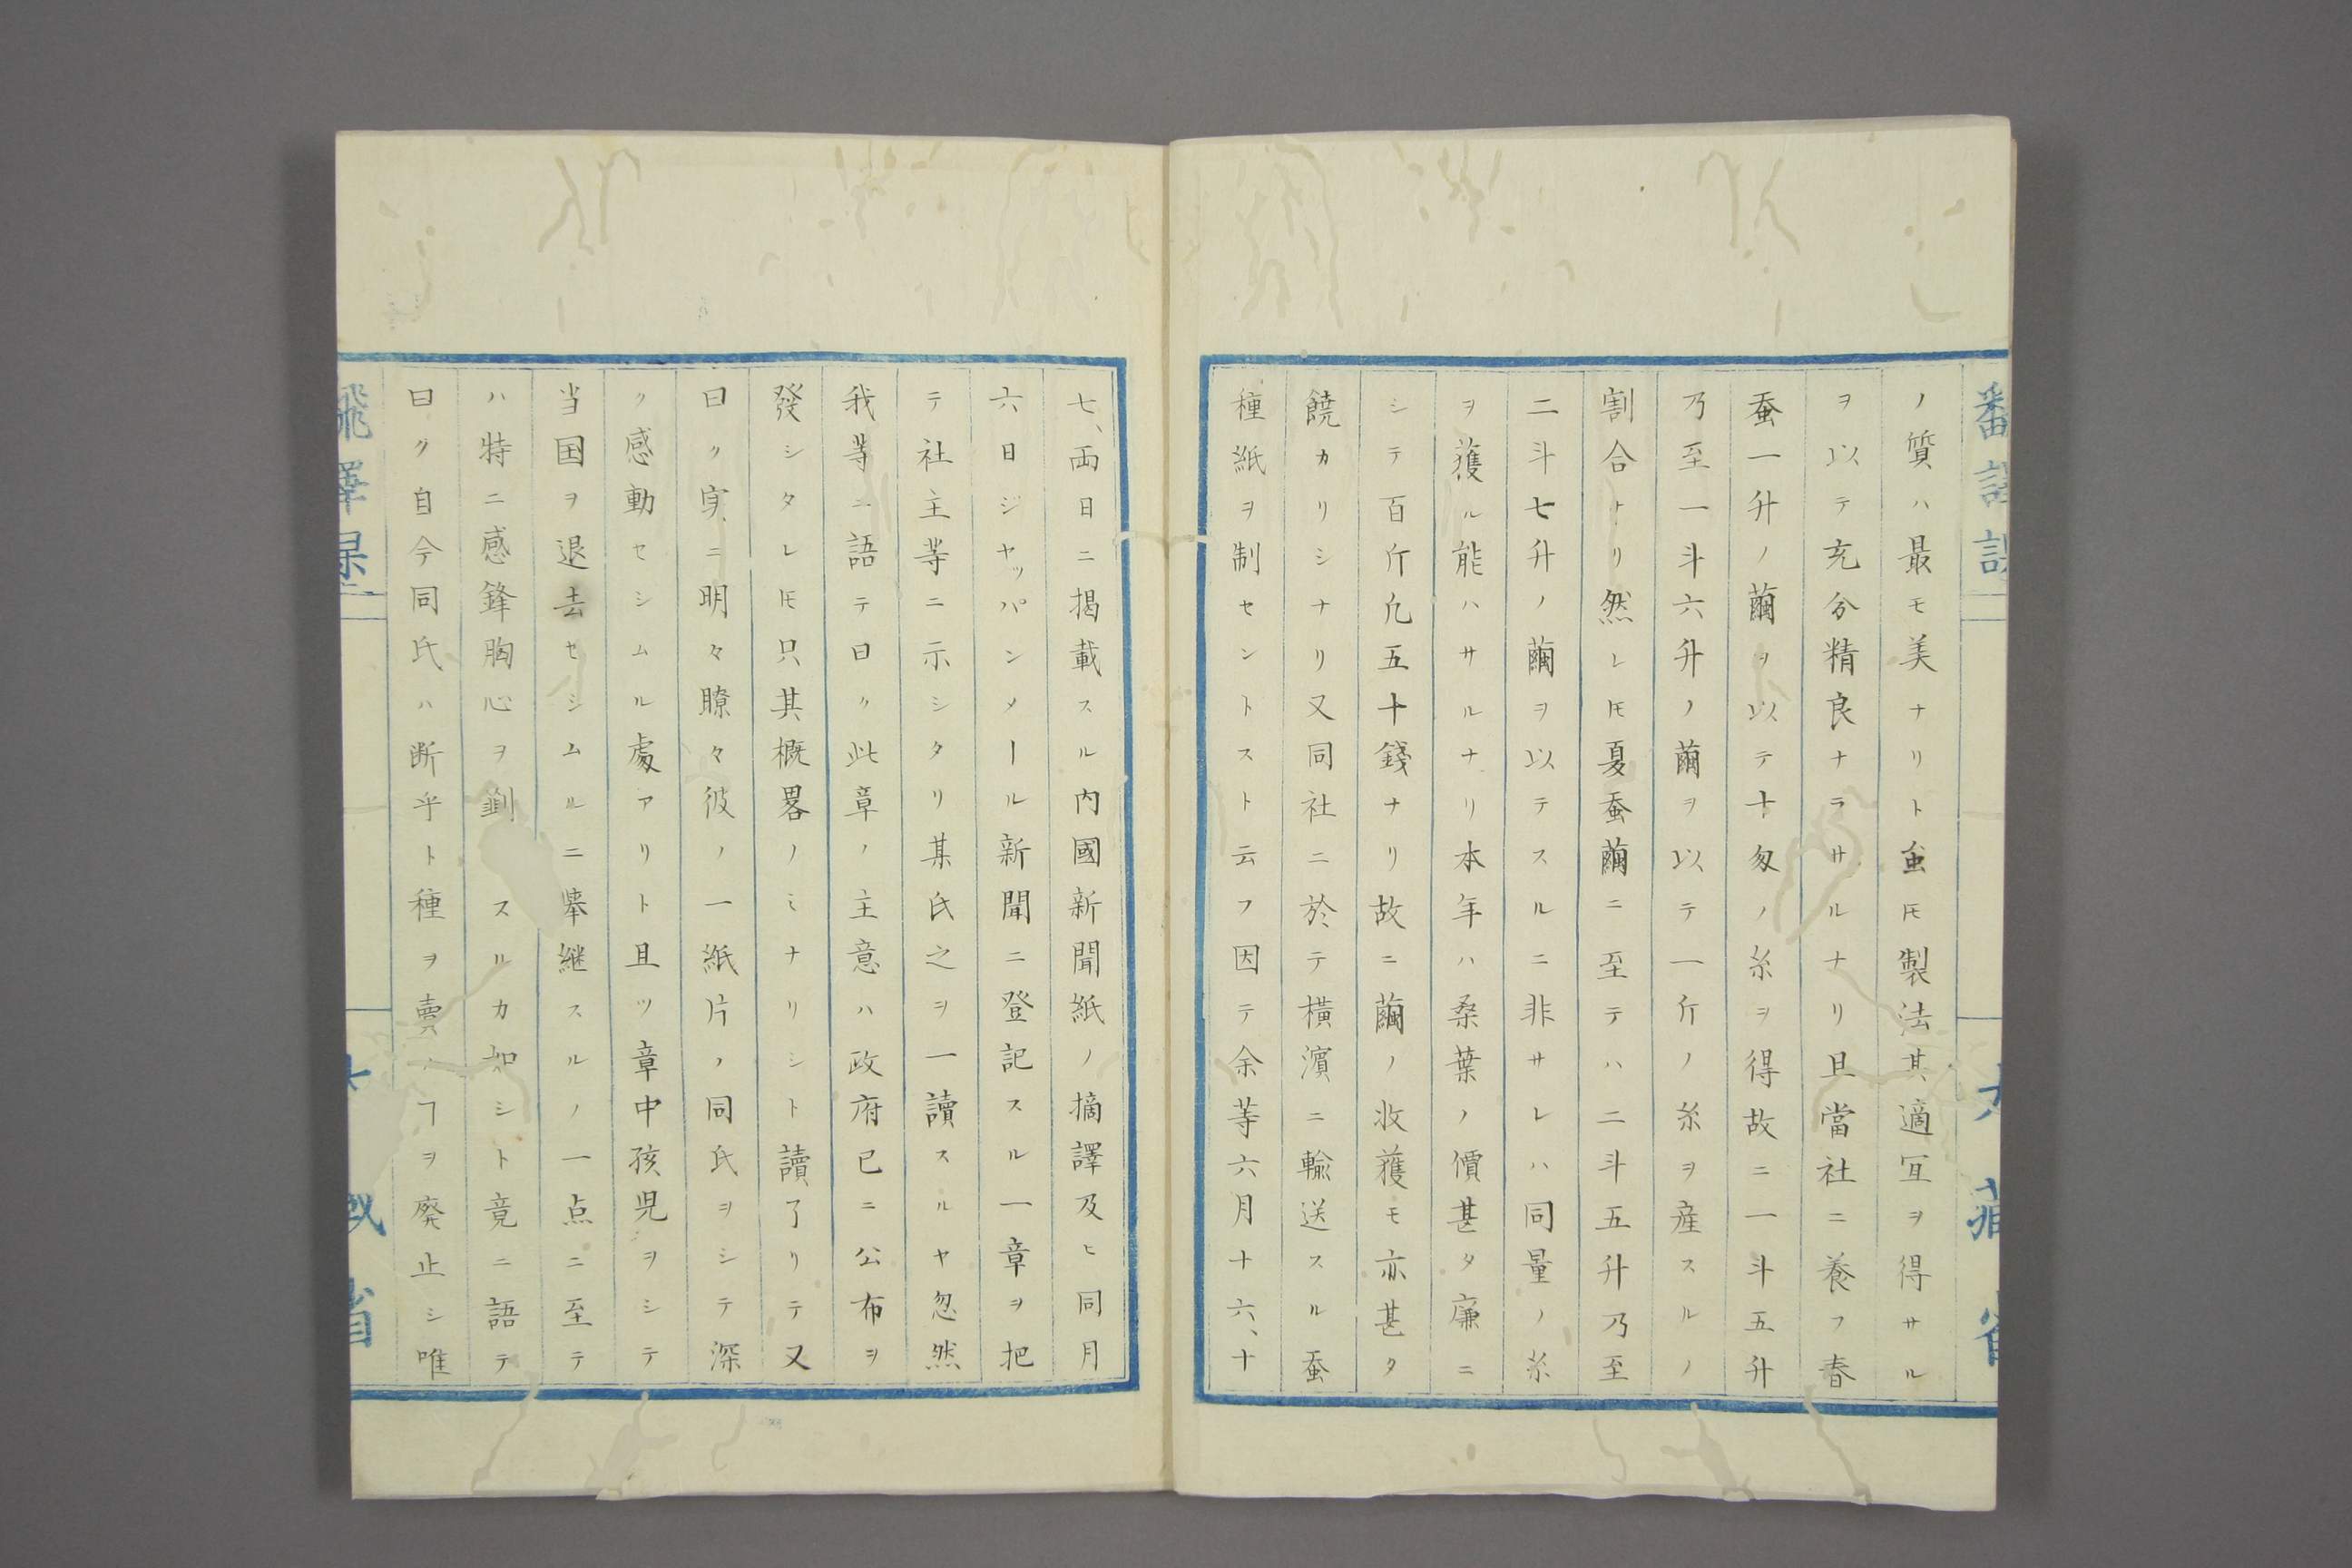 ノ質ハ最モ美ナリト虽𪜈製法其適冝ヲ得サル
ヲ以テ充分精良ナラサルナリ且當社ニ養フ春
蚕一升ノ繭ヲ以テ十匁ノ糸ヲ得故ニ一斗五升
乃至一斗六升ノ繭ヲ以テ一斤ノ糸ヲ産スルノ
割合ナリ然レ𪜈夏蚕繭ニ至テハ二斗五升乃至
二斗七升ノ繭ヲ以テスルニ非サレハ同量ノ糸
ヲ獲ル能ハサルナリ本年ハ桑葉ノ價甚タ廉ニ
シテ百斤凢五十錢ナリ故ニ繭ノ收獲モ亦甚タ
饒カリシナリ又同社ニ於テ横濱ニ輸送スル蚕
種紙ヲ制セントスト云フ因テ余等六月十六、十
七、両日ニ掲載スル内國新聞紙ノ摘譯及ヒ同月
六日ジヤッパンメール新聞ニ登記スル一章ヲ把
テ社主等ニ示シタリ某氏之ヲ一讀スルヤ忽然
我等ニ語テ曰ク此章ノ主意ハ政府已ニ公布ヲ
發シタレ𪜈只其概畧ノミナリシト讀了リテ又
曰ク実ニ明々瞭々彼ノ一紙片ノ同氏ヲシテ深
ク感動セシムル處アリト且ツ章中孩児ヲシテ
当国ヲ退去セシムルニ継スルノ一点ニ至テ
ハ特ニ感鋒胸心ヲスルカ如シト竟ニ語テ
曰ク自今同氏ハ断乎ト種ヲ賣ノヿヲ廃止シ唯